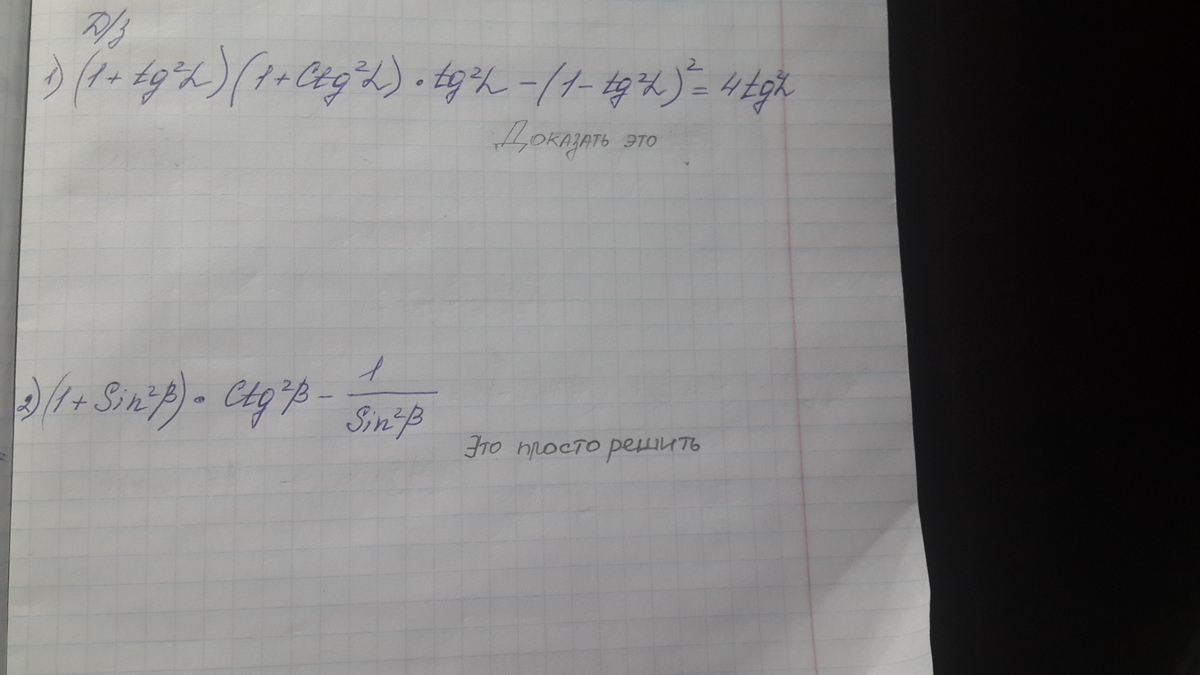 Д/з
1) (1 + tg²α)(1 + Ctg²α) · tg²α − (1 − tg²α)² = 4tg²α
Доказать это
2) (1 + Sin²β) · Ctg²β − 1/Sin²β
Это просто решить